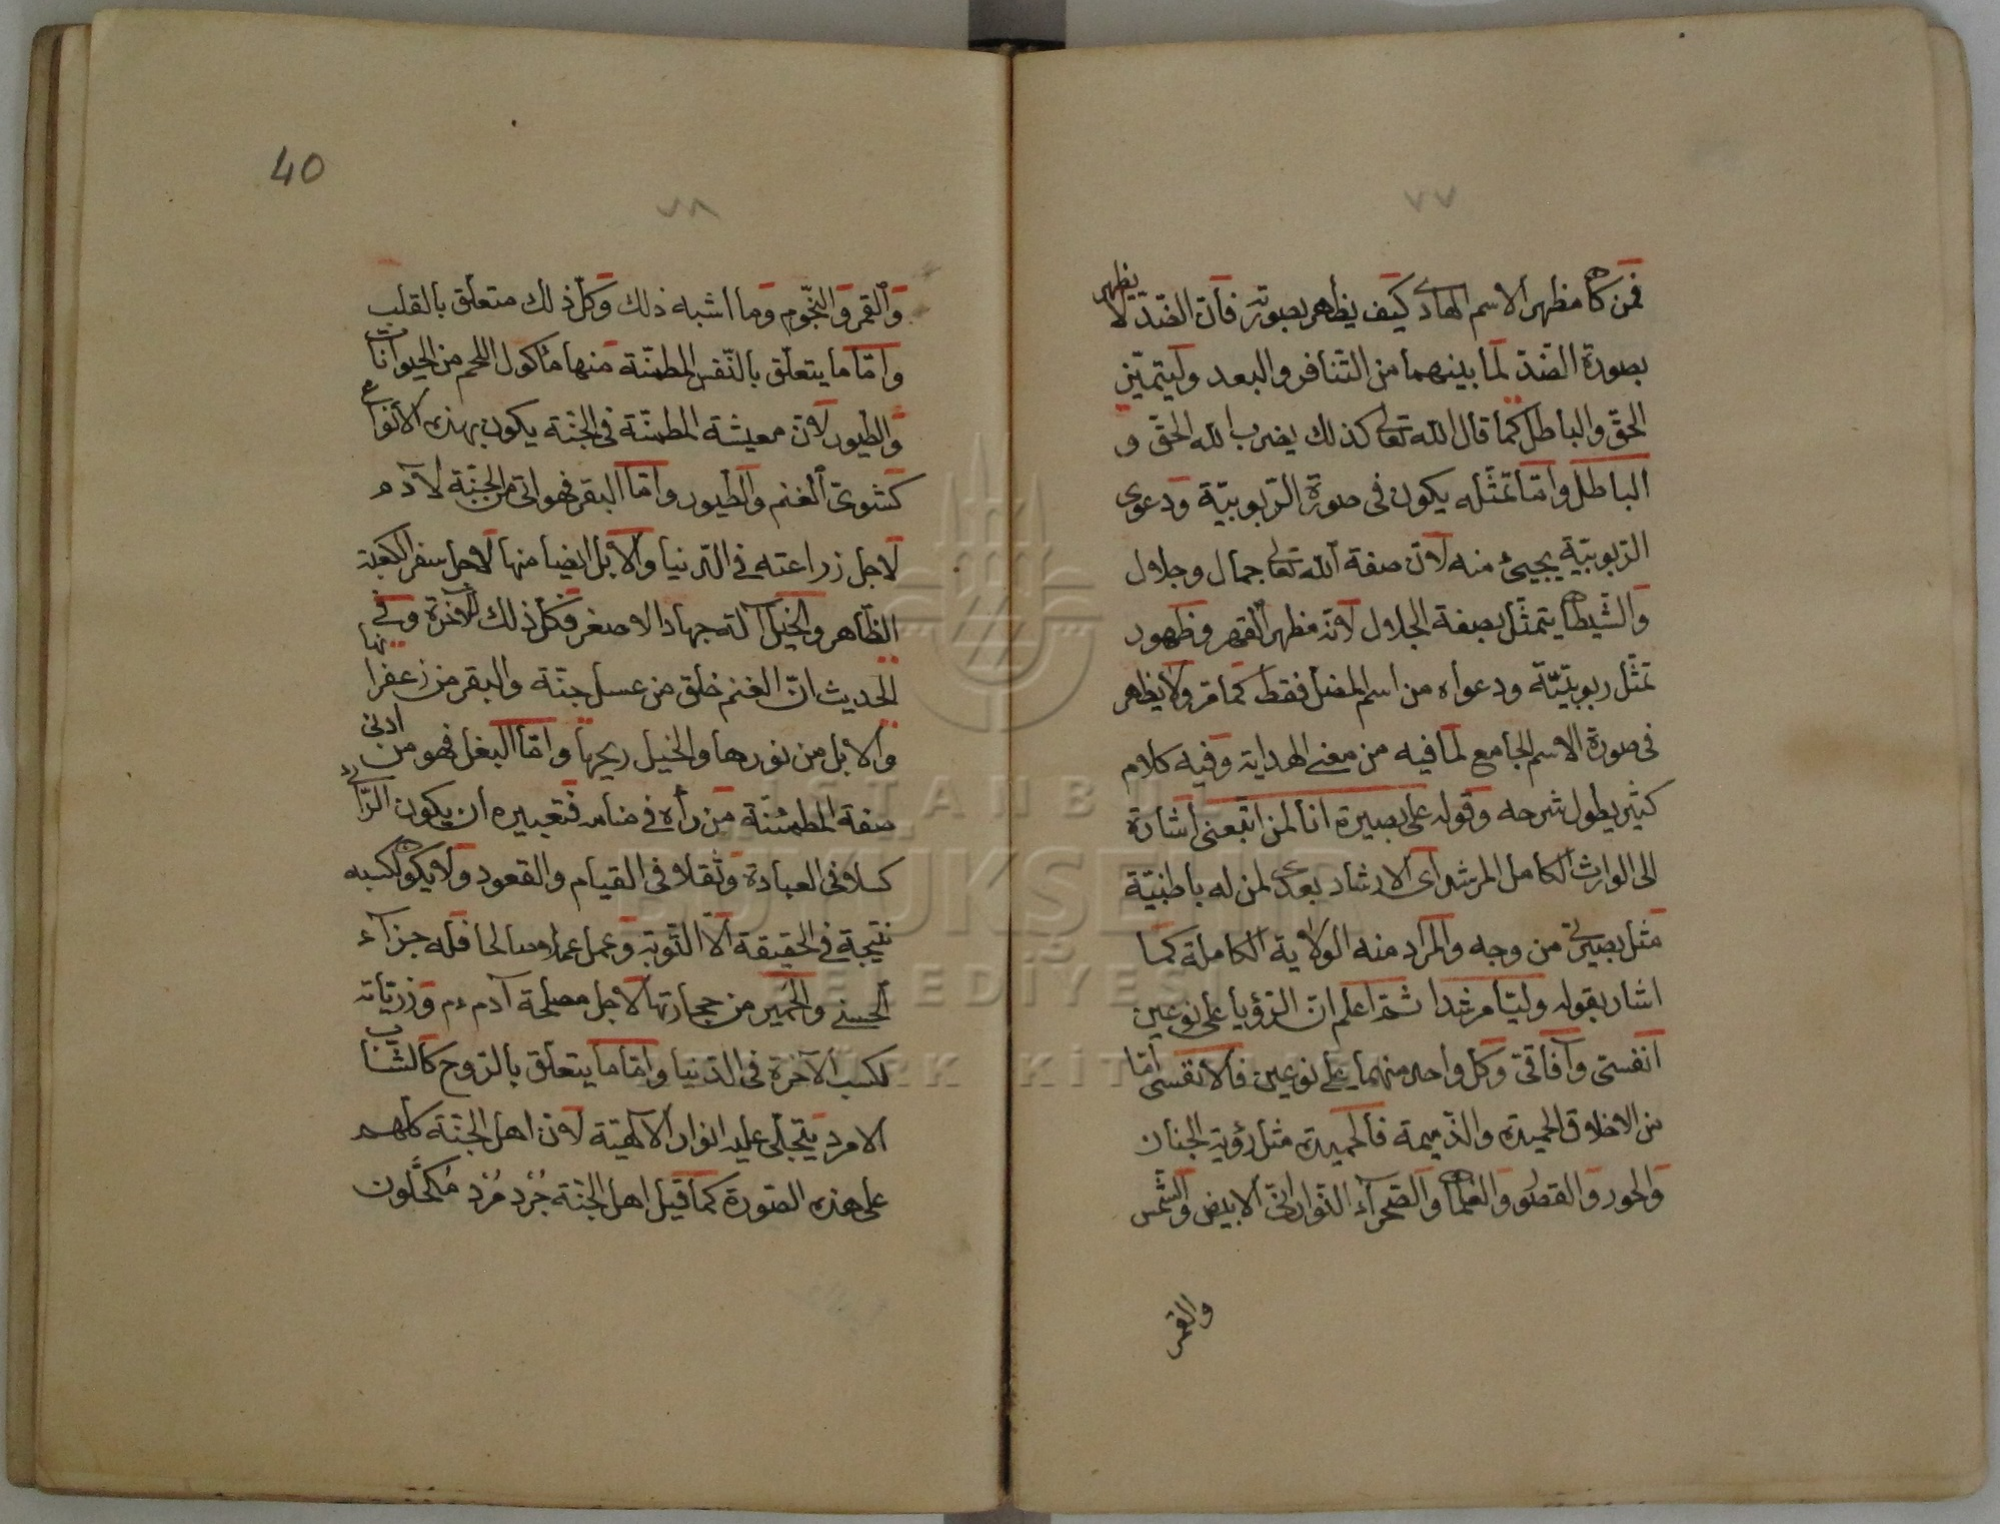 ٧٧
فمن كان مظهر الاسم الهادى كيف يظهر بصورته فان الضّدّ لا يظهر
بصورة الضّدّ لما بينهما من التّنافر والبعد وليتميّز
الحقّ والباطل كما قال الله تعالى كذلك يضرب الله الحقّ و
الباطل وامّا تمثّله يكون فى صورة الرّبوبيّة ودعوى
الرّبوبيّة يجيئ منه لانّ صفة الله تعالى جمال وجلال
والشّيطان يتمثّل بصفة الجلال لانّه مظهر القهر فظهور
تمثّل ربوبيّة ودعواه من اسم المضل فقط كما مرّ ولا يظهر
فى صورة الاسم الجامع لما فيه من معنى الهداية وفيه كلام
كثير يطول شرحه وقوله على بصيرة انا ومن اتبعنى اشارة
الى الوارث الكامل المرشد اى الارشاد بعدى لمن له باطنيّة
مثل بصيرتى من وجه والمراد منه الولاية الكاملة كما
اشار بقوله وليّا مرشدا ثمّ اعلم انّ الرّؤيا على نوعين
انفسىّ وآفاقىّ وكلّ واحد منهما على نوعين فالانفسى امّا
من الاخلاق الحميدة والذّميمة فالحميدة مثل رؤية الجنان
والحور والقصور والغلمان والصّحرآء النّورانىّ الابيض والشّمس
والقمر
40
٧٨
والقمر والنّجوم وما اشبه ذلك وكلّ ذلك متعلّق بالقلب
وامّا ما يتعلّق بالنّفس المطمئنّة منها مأكول اللحم من الحيوانات
والطيور لانّ معيشة المطمئنّة فى الجنّة يكون بهذه الانواع
كشوىّ الغنم والطيور وامّا البقر فهو اتى من الجنّة لآدم
لاجل زراعته فى الدّنيا والابل ايضا منها لاجل سفر الكعبة
الظّاهر والخيل آلة جهاد الاصغر فكلّ ذلك للآخرة وفى
الحديث انّ الغنم خلق من عسل جنّة والبقر من زعفرانها
والابل من نورها والخيل ريحها وامّا البغل فهو من ادنى
صفة المطمئنّة من رأه فى منامه فتعبيره ان يكون الرّائى
كسلا فى العبادة وثقلا فى القيام والقعود ولا يكون لكسبه
نتيجة فى الحقيقة الّا التّوبة وعمل عملا صالحا فله جزآء
الحسنى والحمير من حجارتها لاجل مصلحة آدم ءم وذريّاته
لكسب الآخرة فى الدّنيا وامّا ما يتعلّق بالرّوح كالشّابّ
الامرد يتجلّى عليه انوار الالهيّة لانّ اهل الجنّة كلّهم
على هذه الصّورة كما قيل اهل الجنّة جُرْد مُرْد مُكحّلون